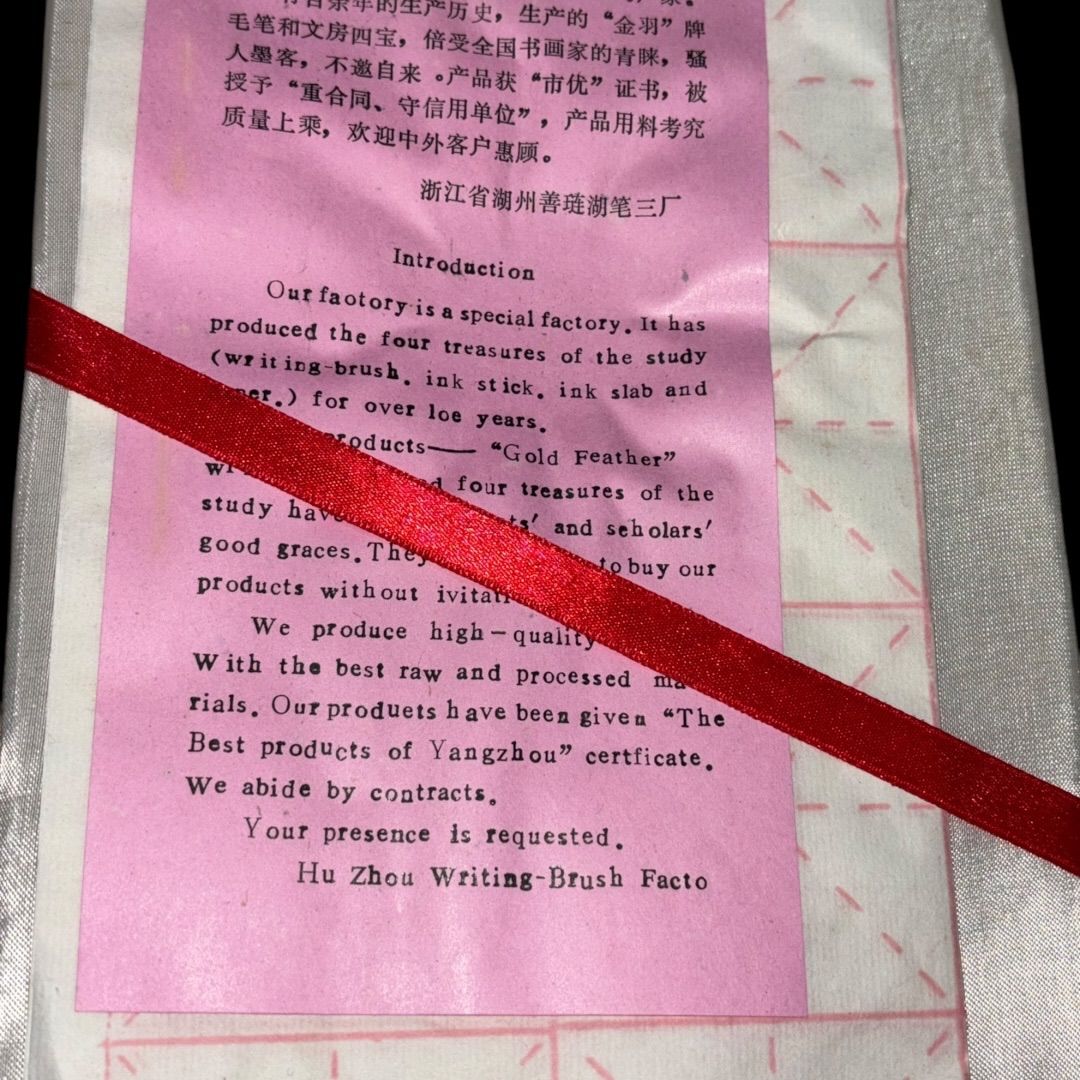 有百余年的生产历史，生产的“金羽”牌
毛笔和文房四宝，倍受全国书画家的青睐，骚
人墨客，不邀自来。产品获“市优”证书，被
授予“重合同、守信用单位”，产品用料考究
质量上乘，欢迎中外客户惠顾。
浙江省湖州善琏湖笔三厂
Introduction
Our faotory is a special factory. It has
produced the four treasures of the study
(writing-brush. ink stick. ink slab and
for over loe years.
“Gold Feather”
four treasures of the
study and seholars'
good graces. to buy our
products without
We produce high-quality
With the best raw and processed
rials. Our produets have been given “The
Best products of Yangzhou” certficate.
We abide by contracts.
Your presence is requested.
Hu Zhou Writing-Brush Facto